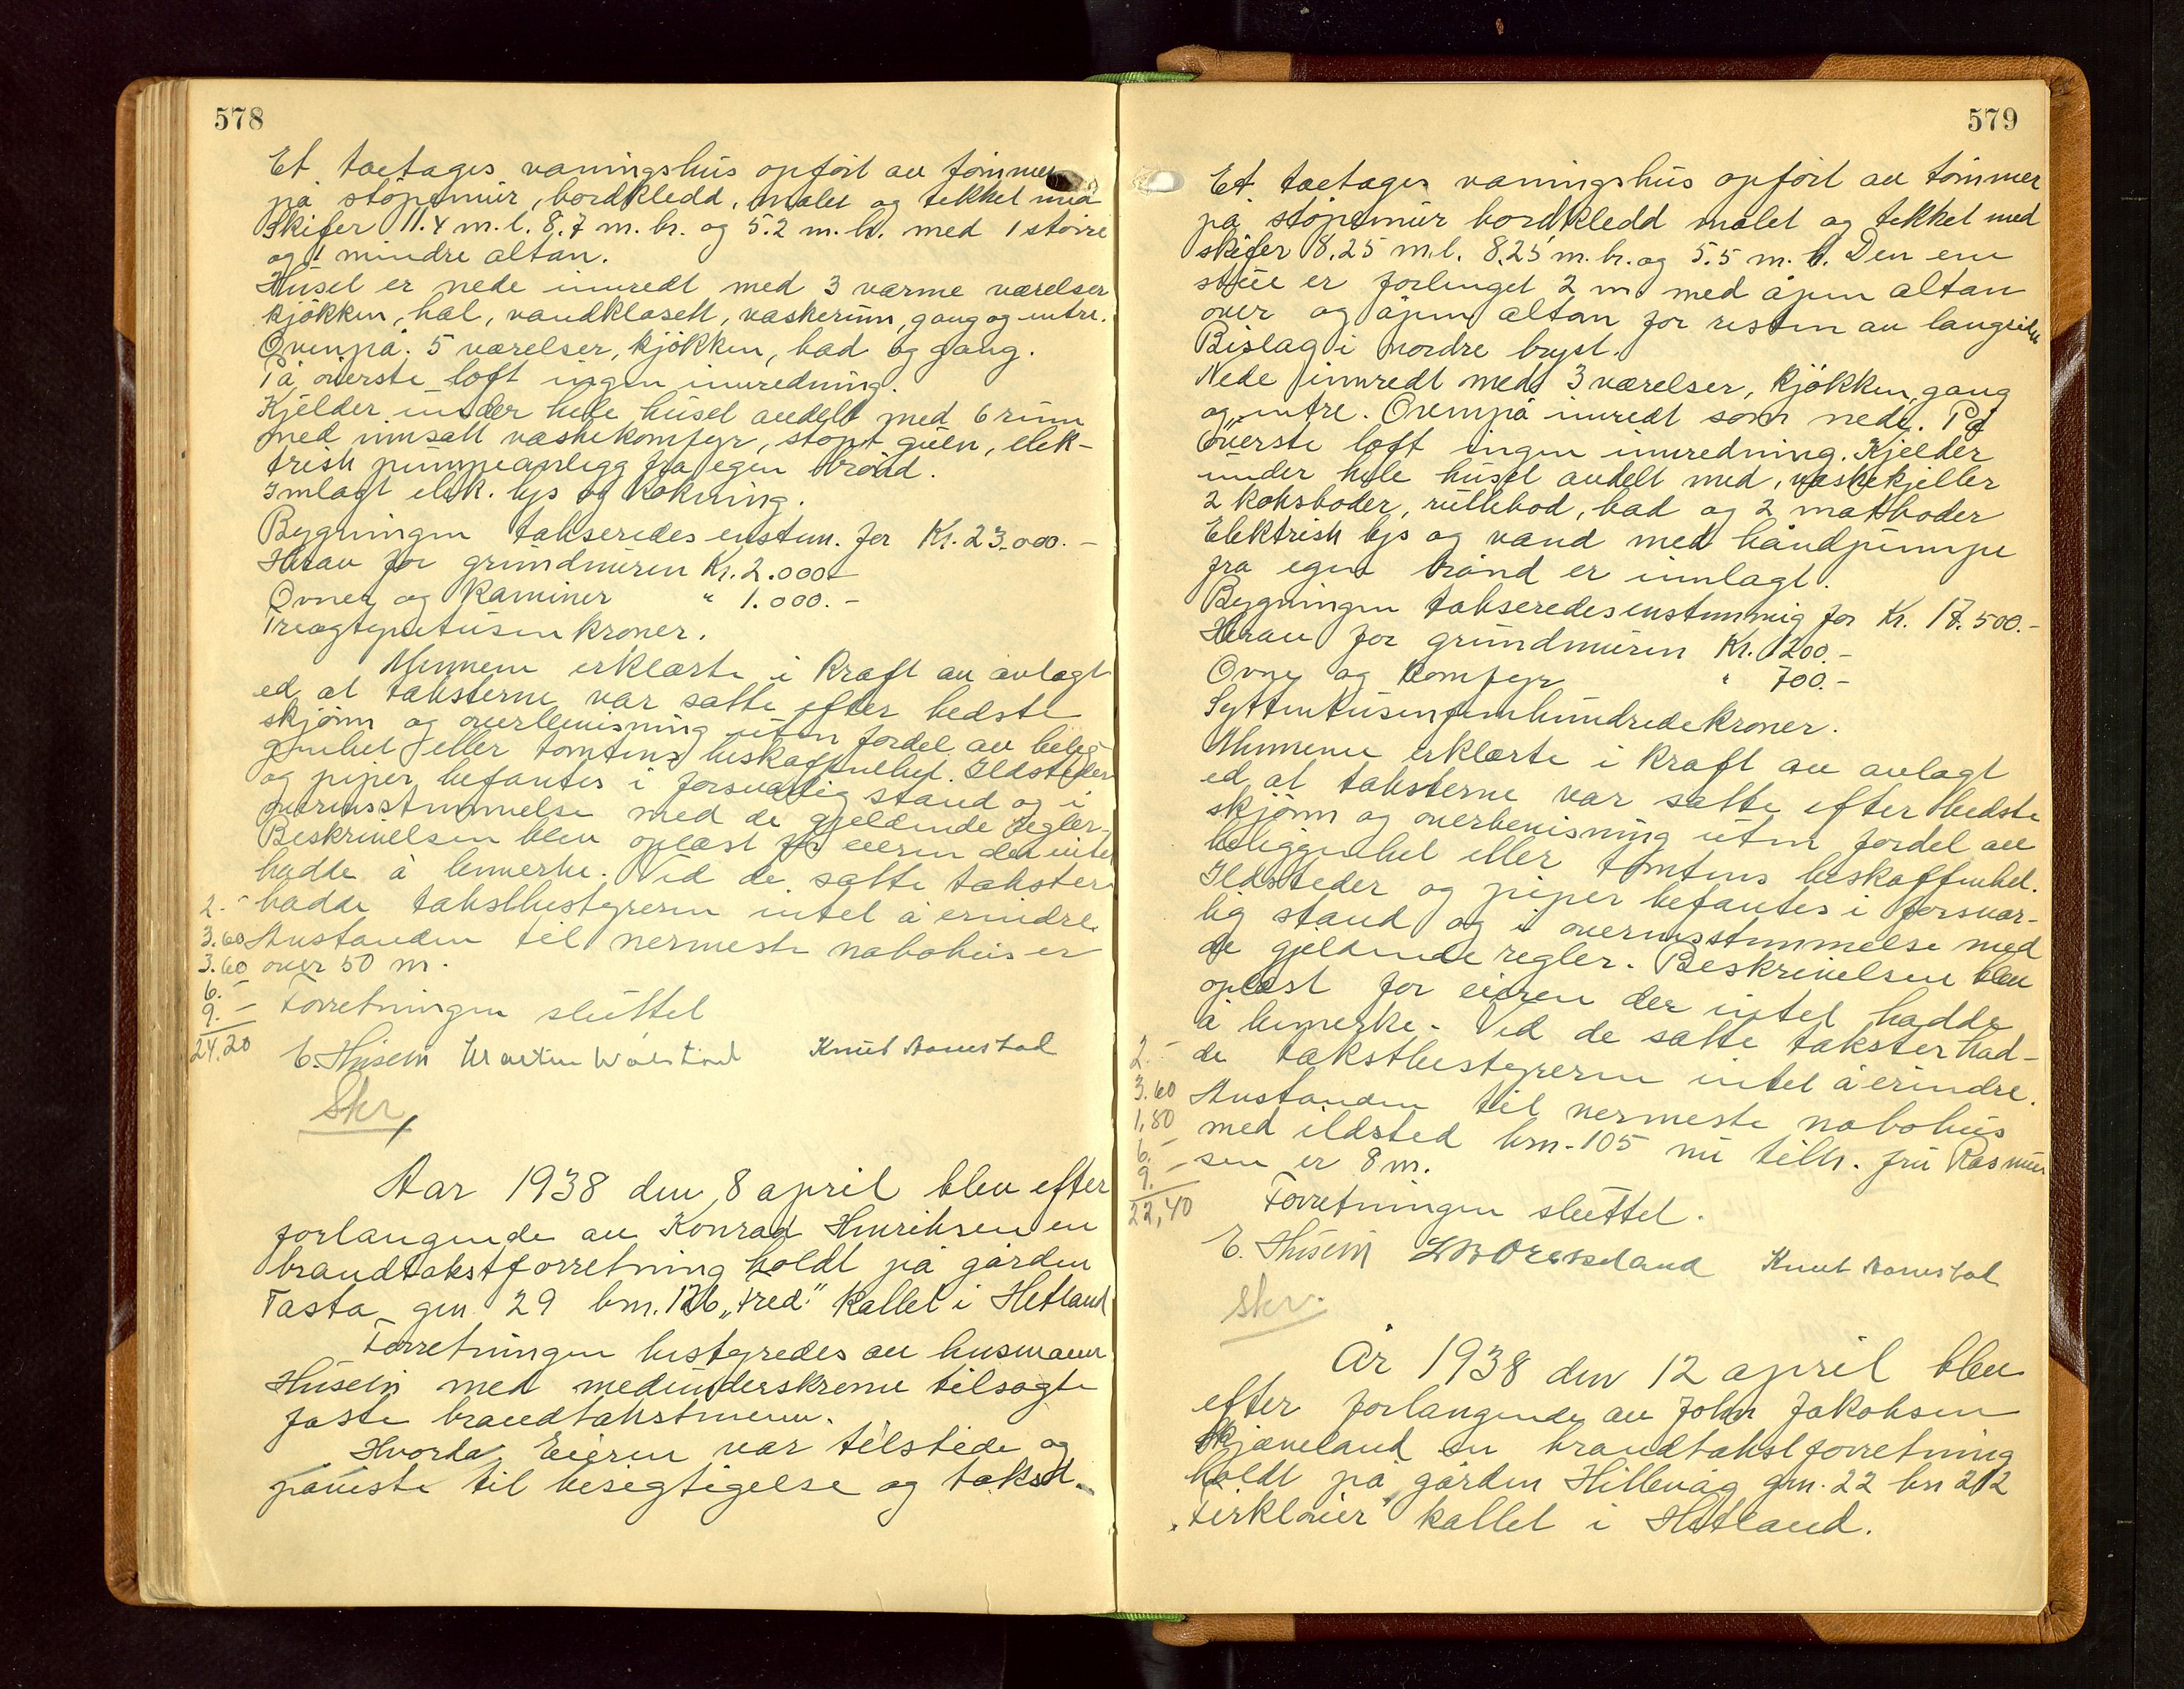 578
Et toetages vaningshus opført av tømmer
på støpemur, bordkledd, malet og tekket med
Skifer 11.4 m.l. 8.7 m. br. og 5.2 m. h. med 1 større
og 1 mindre altan.
Huset er nede innredt med 3 varme værelser
kjøkken, hal, vandklosett, vaskerum, gang og entre.
Ovenpå: 5 værelser, kjøkken, bad og gang.
På øverste loft ingen innredning.
Kjelder under hele huset avdelt med 6 rum
med innsatt vaskekomfyr, støpt gulv, elek-
trisk pumpeanlegg fra egen brønd.
Innlagt elek. lys og kokning.
Bygningen takseredes enstem. for Kr. 23.000.-
Herav for grundmuren Kr. 2.000-
Ovner og Kaminer " 1.000.-
Treogtyvetusen kroner.
Mennene erklærte i Kraft av avlagt
ed, at taksterne var satte efter bedste
skjønn og overbevisning uten fordel av belig-
genhet eller tomtens beskaffenhet. Ildsteder
og piper befantes i forsvarlig stand og i
overensstemmelse med de gjeldende regler.
Beskrivelsen blev oplæst for eieren der intet
hadde å bemerke. Ved de satte takster
2.- hadde takstbestyreren intet å erindre.
3.60 Avstanden til nermeste nabohus er
3.60 over 50 m.
6.-
9.- Forretningen sluttet
24,20 E. Husein Martin Wolstad Knut Aamstad
Skr,
Aar 1938 den 8 april blev efter
forlangende av Konrad Henriksen en
brandtakstforretning holdt på gården
Tasta gn. 29 bn. 126 „Fred" kallet i Hetland
Forretningen bestyredes av lensmann
Husein med medunderskrevne tilsagte
faste brandtakstmenn.
Hvorda Eieren var tilstede og
påviste til besigtigelse og takst.
579
Et toetages vaningshus opført av tømmer
på støpemur bordkledd malet og tekket med
skifer 8.25 m.l. 8.25 m. br. og 5.5 m. h. Den ene
stue er forlenget 2 m med åpen altan
over og åpen altan for resten av langside
Bislag i nordre bryst.
Nede innredt med 3 værelser, kjøkken, gang
og entre. Ovenpå inredt som nede. På
øverste loft ingen innredning. Kjelder
under hele huset avdelt med, vaskekjeller
2 koksboder, rullebod, bad og 2 matboder
Elektrisk lys og vand med håndpumpe
fra egen brønd er innlagt.
Bygningen takseredes enstemmig for Kr. 17.500.-
Herav for grundmuren Kr. 1200.-
Ovne og Komfyr " 700.-
Syttentusenfemhundredekroner.
Mennene erklærte i kraft av avlagt
ed at taksterne var satte efter bedste
skjønn og overbevisning uten fordel av
beliggenhet eller tomtens beskaffenhet.
Ildsteder og piper befantes i forsvar-
lig stand og i overensstemmelse med
de gjeldende regler. Beskrivelsen blev
oplæst for eieren der intet hadde
å bemerke. Ved de satte takster had-
2.- de takstbestyreren intet å erindre.
3.60 Avstanden til nermeste nabohus
1,80 med ildsted bn. 105 nu tilh. fru Rasmus
6.- sen er 8 m.
9.-
22,40 Forretningen sluttet.
E. Husein Knut Aamstad
Skr.
År 1938 den 12 april blev
efter forlangende av John Jakobsen
Skjæveland en brandtakstforretning
holdt på gården Hillevåg gn. 22 bn 212
„Firkløver" kallet i Hetland.